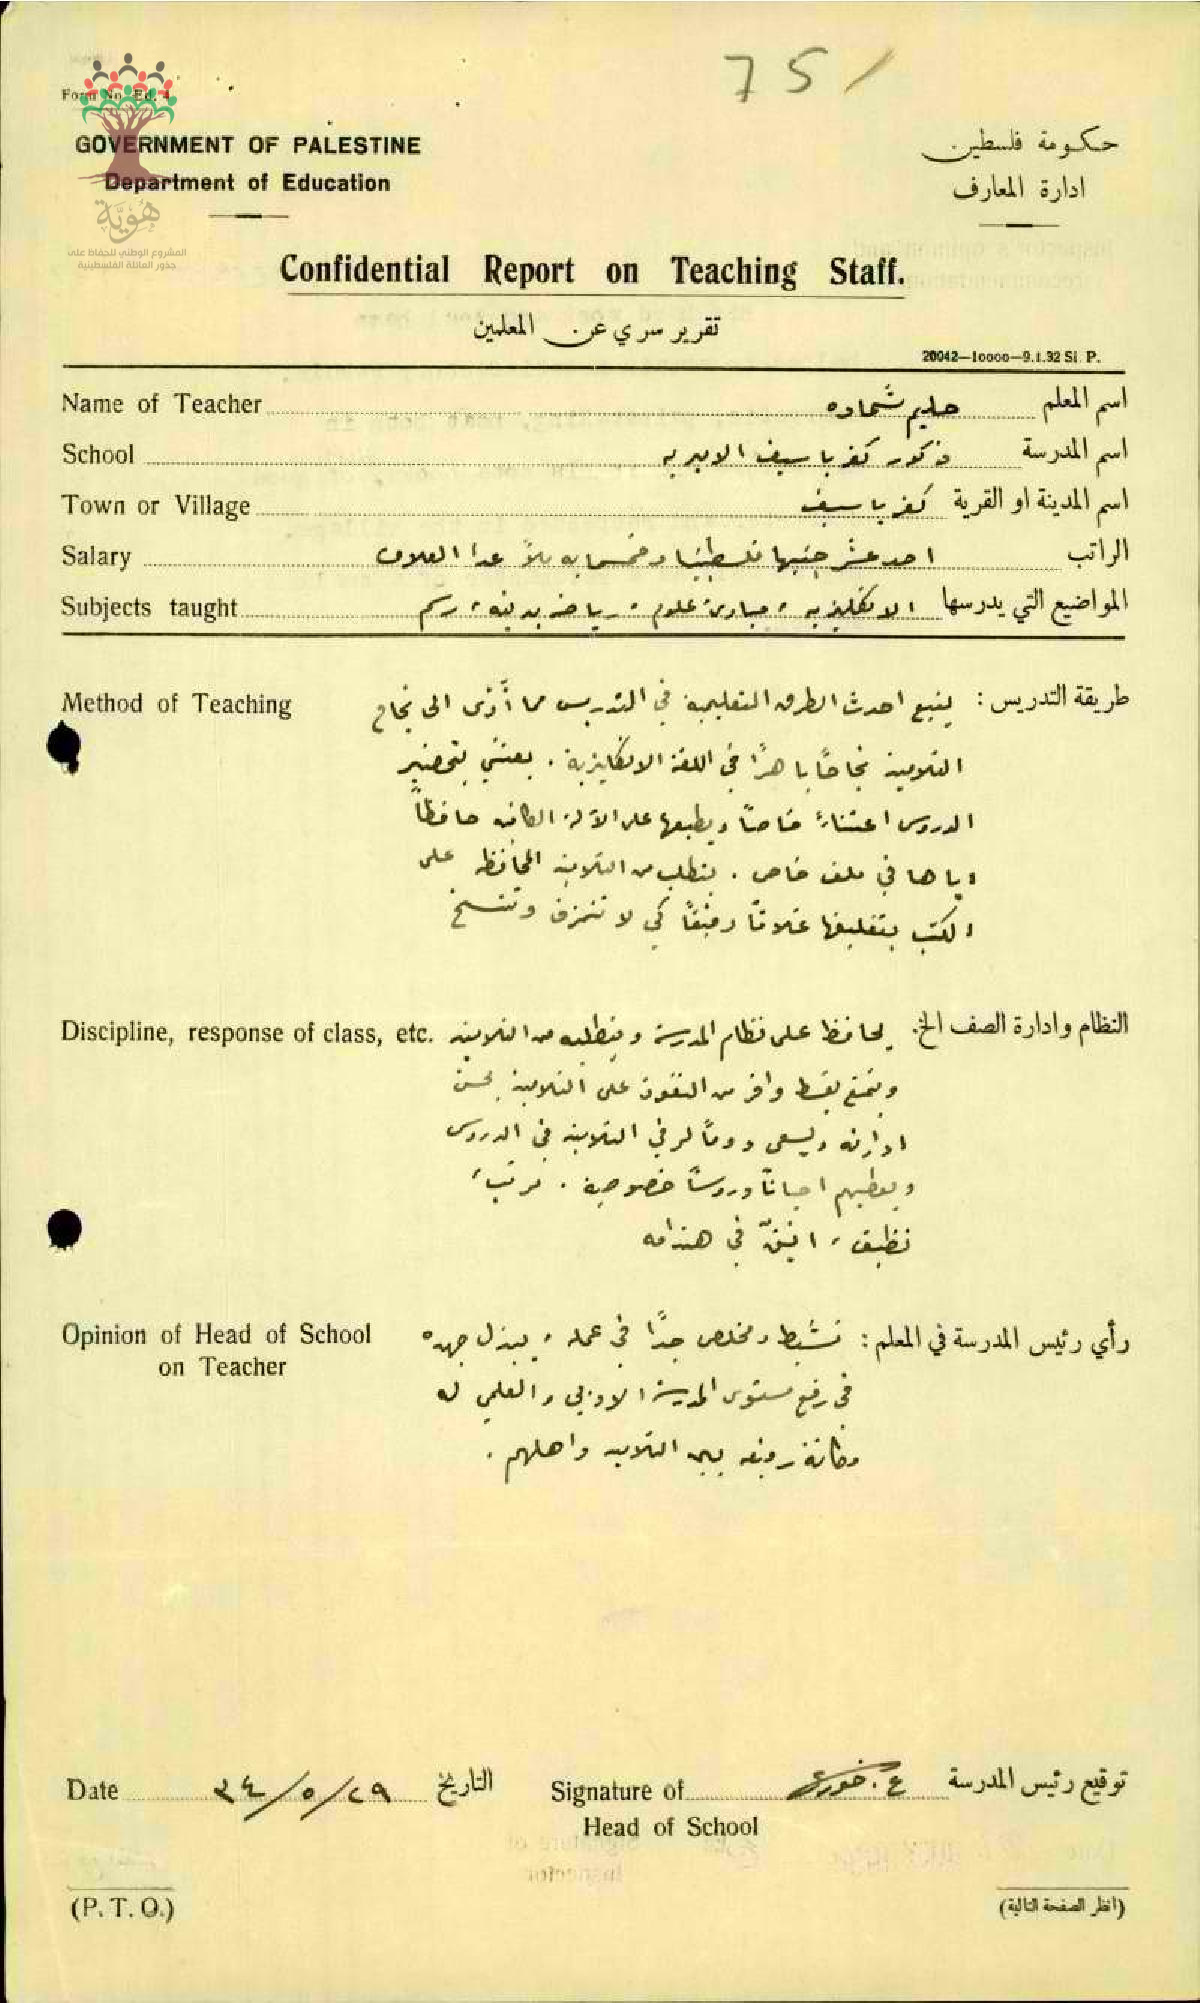 75/
Form No. Ed. 4
GOVERNMENT OF PALESTINE
Department of Education
حكومة فلسطين
ادارة المعارف
هُويَّة
المشروع الوطني للحفاظ على
جذور العائلة الفلسطينية
Confidential Report on Teaching Staff.
تقرير سري عن المعلمين
20042—10000—9.1.32 Sl. P.
Name of Teacher حليم شحاده اسم المعلم
School ذكور كفر ياسيف الاميريه اسم المدرسة
Town or Village كفر ياسيف اسم المدينة او القرية
Salary احد عشر جنيها فلسطينيا وخمسمايه ملاً عدا العلاوه الراتب
Subjects taught الانكليزيه، مبادئ علوم، رياضه بدنيه، رسم المواضيع التي يدرسها
Method of Teaching
طريقة التدريس: يتبع احدث الطرق التعليمية في التدريس مما أدّى الى نجاح
التلاميذ نجاحًا باهرًا في اللغة الانكليزية. يعتني بتحضير
الدروس اعتناءً خاصًا ويطبعها على الآلة الكاتبه حافظاً
اياها في ملف خاص. يتطلب من التلاميذ المحافظه على
الكتب بتغليفها غلافًا كي لا تتمزق وتتسخ
Discipline, response of class, etc.
النظام وادارة الصف الخ. يحافظ على نظام المدرسة ويتطلبه من التلاميذ
ويتمتع بقسط وافر من النفوذ على التلاميذ بحسن
ادارته ويسعى دوماً التلاميذ في الدروس
ويعطيهم احياناً دروسًا خصوصية. مرتب،
نظيف، انيقٌ في هندامه
Opinion of Head of School
on Teacher
رأي رئيس المدرسة في المعلم: نشيط ومخلص جدًا في عمله، يبذل جهده
في رفع مستوى المدرسة الادبي والعلمي له
مكانة رفيعه بين التلاميذ واهلهم.
Date ٢٩/٥/٣٤ التاريخ
Signature of ع. خوري توقيع رئيس المدرسة
Head of School
(P. T. O.)
(انظر الصفحة التالية)